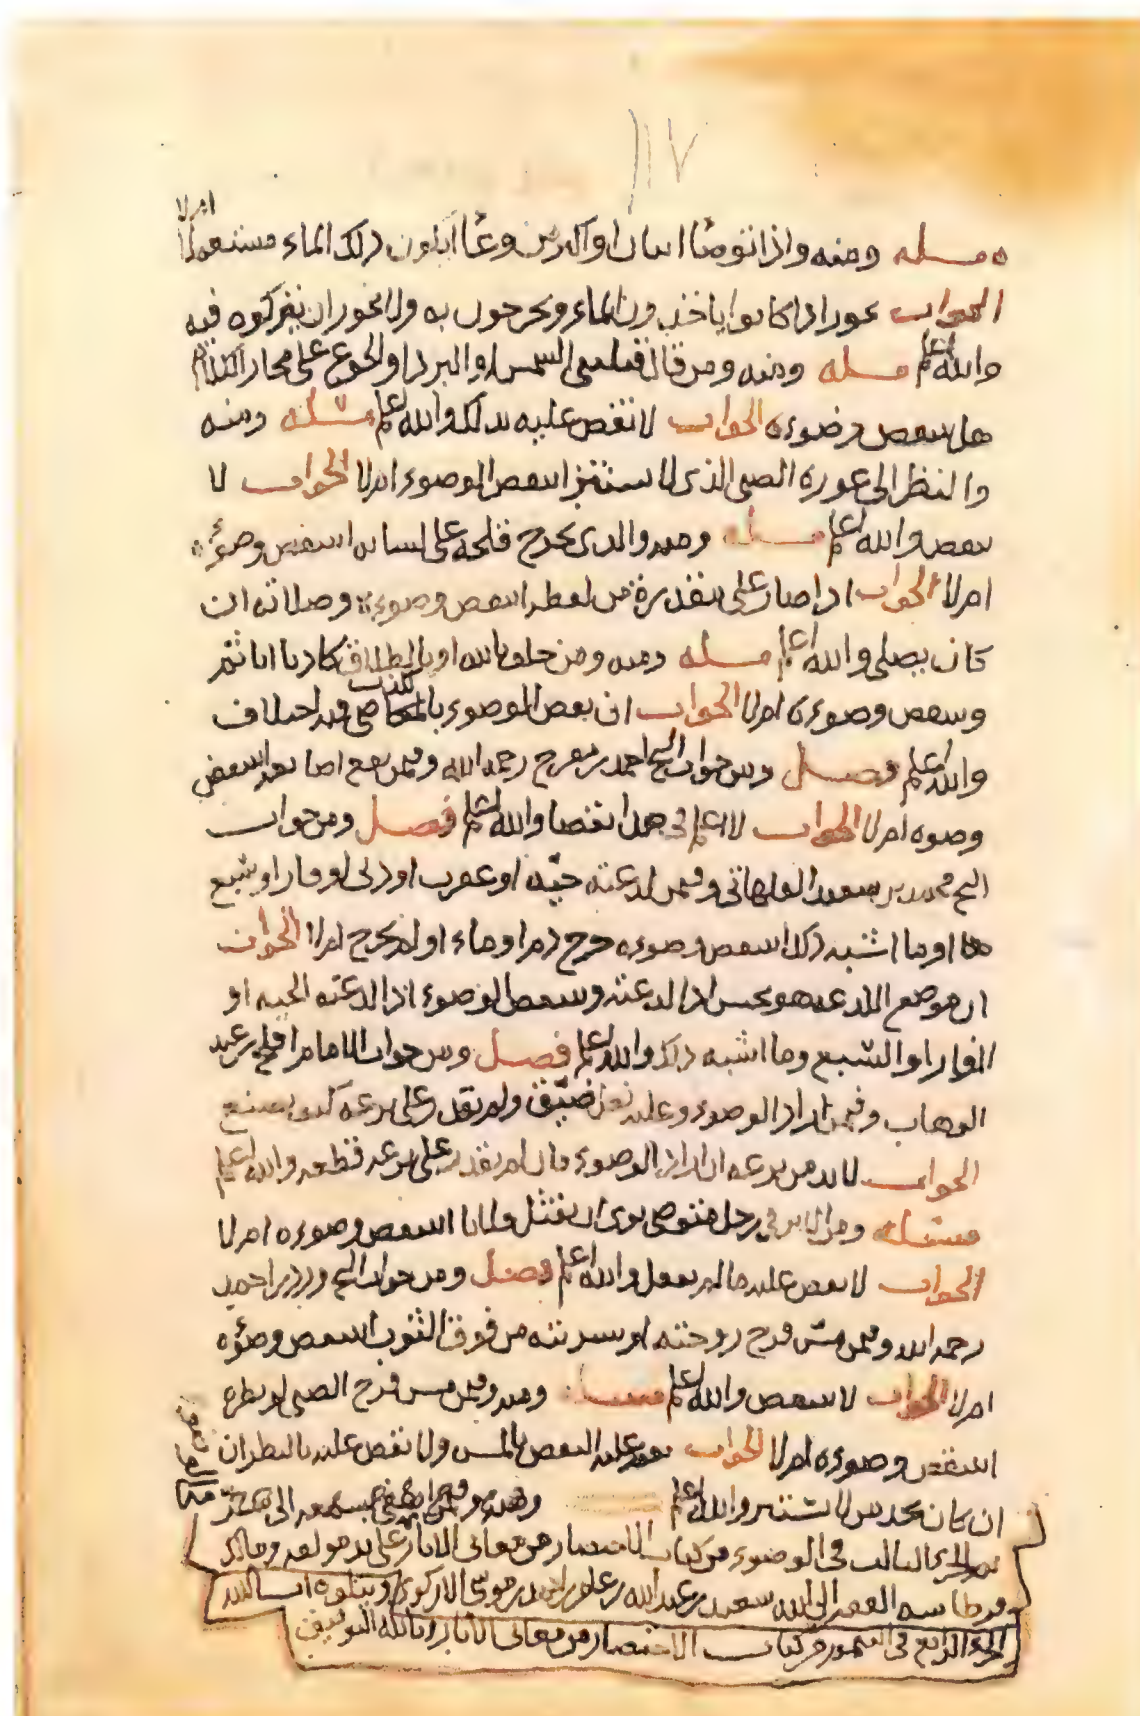 ١١٧
مسله ومنه واذا توضا انسان او اكثر من وعا ايكون ذلك الماء مستعملا ام لا
الجواب يجوز اذا كانوا ياخذون الماء ويخرجون به ولا يجوز ان يفركوه فيه
والله اعلم مسله ومنه ومن قال قتلتني الشمس او البرد او الجوع على مجاز الكلام
هل ينقض وضوءه الجواب لا نقض عليه بذلك والله اعلم مسئله ومنه
والنظر الى عورة الصبي الذي لا يستتر اينقض الوضوء ام لا الجواب لا
ينقض والله اعلم مسله ومنه والذي يخرج قلحه على لسانه اينقض وضوءه
ام لا الجواب اذا صار على مقدرة من لفظه انتقض وضوءه وصلاته ان
كان يصلي والله اعلم مسله ومنه ومن حلف بالله او بالطلاق كاذبا اياثم
وينقض وضوءه ام لا الجواب ان نقض الوضوء بالكذب فيه اختلاف
والله اعلم فصل ومن جواب الشيخ احمد بن مفرح رحمه الله وفيمن اينقض
وضوه ام لا الجواب لا اعلم في هذا نقضا والله اعلم فصل ومن جواب
الشيخ محمد بن سعيد القلهاتي وفيمن لدغته حيه او عقرب او دبى او فار او شبع
هذا وما اشبه ذلك اينقض وضوءه خرج دم او ماء او لم يخرج ام لا الجواب
ان موضع اللدغه هو نجس اذا لدغته وينقض الوضوء اذا لدغته الحيه او
الفار او الشبع وما اشبه ذلك والله اعلم فصل ومن جواب الامام افلح بن عبد
الوهاب وفيمن اراد الوضوء وعليه نعل ضيق ولم يقدر على نزعه كيف يصنع
الجواب لابد من نزعه ان اراد الوضوء فان لم يقدر على نزعه قطعه والله اعلم
مسئله ومن الاثر في رجل متوضي نوى ان يقتل فلانا اينقض وضوءه ام لا
الجواب لا نقض عليه ما لم يفعل والله اعلم فصل ومن جواب الشيخ ورد بن احمد
رحمه الله وفيمن مس فرج زوجته او سريته من فوق الثوب اينقض وضوءه
ام لا الجواب لا ينقض والله اعلم مسله ومنه وفيمن مس فرج الصبي او نظره
اينتقض وضوءه ام لا الجواب عليه النقض بالمس ولا نقض عليه بالنظر ان
ان كان بحد من لا يستتر والله اعلم
تم الجزء الثالث في الوضوء من كتاب الاختصار من معاني الاثار على يد مولفه ومالكه
الفقير الى الله سعيد بن عبدالله بن عامر بن احمد بن موسى الازكوي ويتلوه ان شا الله
الجزء الرابع في التيمم من كتاب الاختصار من معاني الاثار وبالله التوفيق